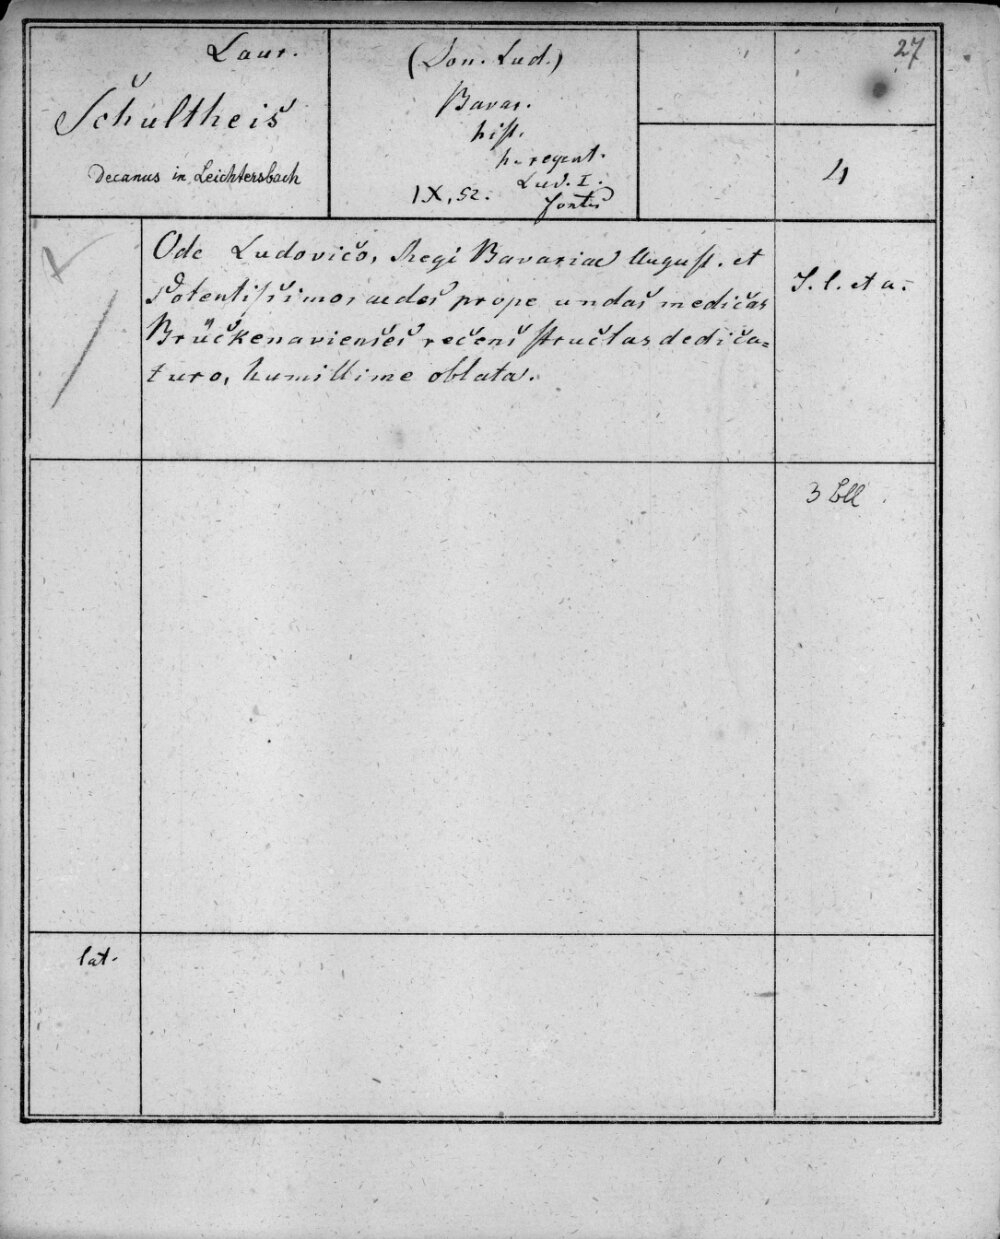 Laur.
Schultheis
Decanus in Leichtersbach
(Don. Lud.)
Bavar.
hist.
h. regent.
Lud. I.
IX, 52.
27
4
Ode Ludovico, Regi Bavariae August. et
Potentissimo, aedes prope undas medicas
Brückenavienses recens structas dedica=
turo, humillime oblata.
S. l. et a.
3 Bll
lat.